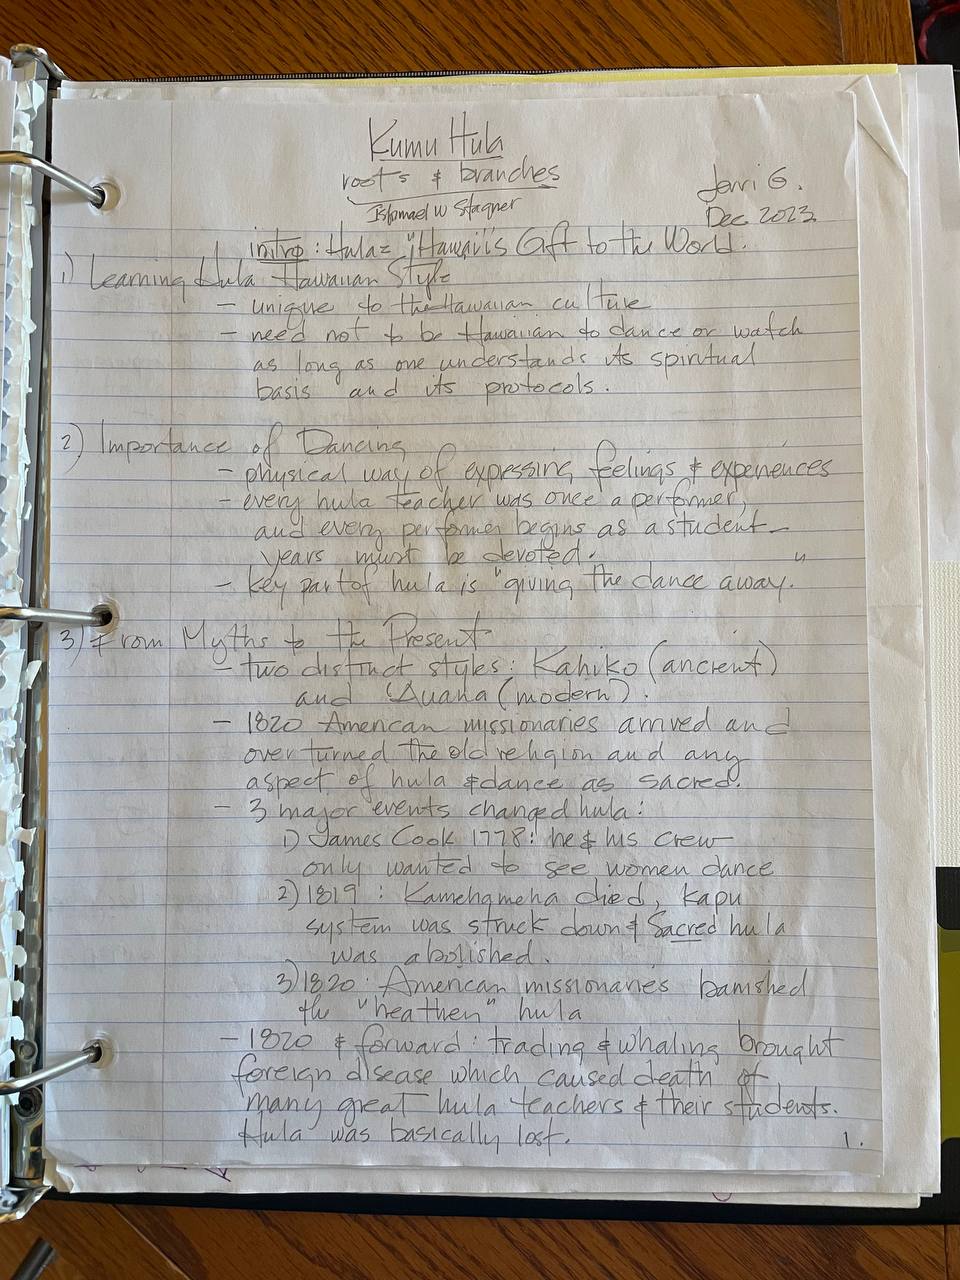 Kumu Hula
roots & branches
Ishmael W Stagner
Jerri G.
Dec 2023
intro: Hula = "Hawaii's Gift to the World.
1) Learning Hula Hawaiian Style
- unique to the Hawaiian culture
- need not to be Hawaiian to dance or watch
as long as one understands its spiritual
basis and its protocols.
2) Importance of Dancing
- physical way of expressing feelings & experiences
- every hula teacher was once a performer,
and every performer begins as a student -
years must be devoted.
- key part of hula is "giving the dance away."
3) From Myths to the Present
- two distinct styles: Kahiko (ancient)
and 'Auana (modern).
- 1820 American missionaries arrived and
overturned the old religion and any
aspect of hula & dance as sacred.
- 3 major events changed hula:
1) James Cook 1778: he & his crew
only wanted to see women dance
2) 1819: Kamehameha died, Kapu
system was struck down & Sacred hula
was abolished.
3) 1820: American missionaries banished
the "heathen" hula
- 1820 & forward: trading & whaling brought
foreign disease which caused death of
many great hula teachers & their students.
Hula was basically lost.
1.